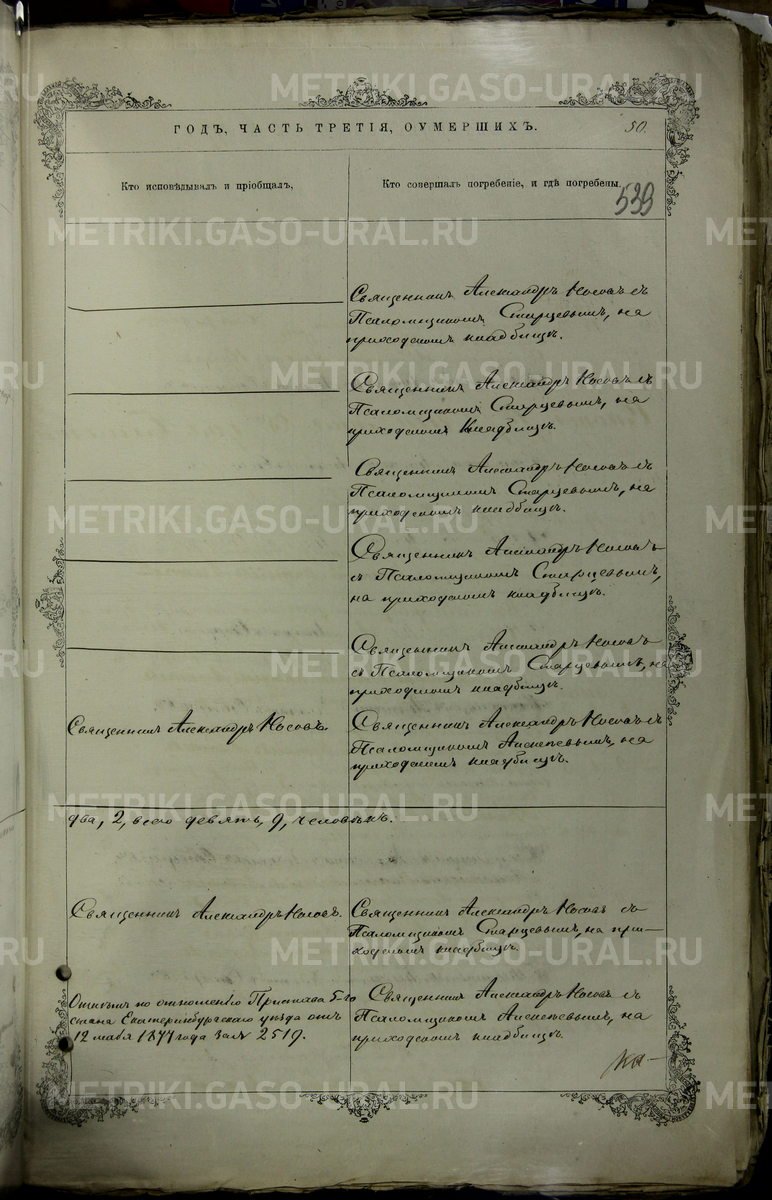 ГОДЪ, ЧАСТЬ ТРЕТІЯ, ОУМЕРШИХЪ.
50.
Кто исповѣдывалъ и пріобщалъ,
Кто совершалъ погребеніе, и гдѣ погребены.
539
Священникъ Александръ Носовъ съ
Псаломщикомъ Старцевымъ, на
приходскомъ кладбищѣ.
Священникъ Александръ Носовъ съ
Псаломщикомъ Старцевымъ, на
приходскомъ Кладбищѣ.
Священникъ Александръ Носовъ съ
Псаломщикомъ Старцевымъ, на
приходскомъ кладбищѣ.
Священникъ Александръ Носовъ
съ Псаломщикомъ Старцевымъ,
на приходскомъ кладбищѣ.
Священникъ Александръ Носовъ
съ Псаломщикомъ Старцевымъ, на
приходскомъ кладбищѣ.
Священникъ Александръ Носовъ.
Священникъ Александръ Носовъ съ
Псаломщикомъ Алексѣевымъ, на
приходскомъ кладбищѣ.
два, 2, всего девять, 9, человѣкъ.
Священникъ Александръ Носовъ.
Священникъ Александръ Носовъ съ
Псаломщикомъ Старцевымъ, на при-
ходскомъ кладбищѣ.
по отношенію Пристава 5-го
стана Екатеринбургскаго уѣзда отъ
12 мая 1877 года за № 2519.
Священникъ Александръ Носовъ съ
Псаломщикомъ Алексѣевымъ, на
приходскомъ кладбищѣ.
METRIKI.GASO-URAL.RU